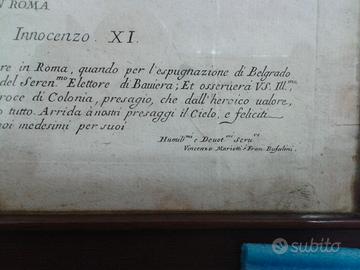 N ROMA
Innocenzo. XI.
re in Roma, quando per l'espugnazione di Belgrado
del Seren.mo Elettore di Baviera; Et osseruerà V.S. Ill.ma,
roce di Colonia, presagio, che dall'heroico ualore,
o tutto. Arrida à nostri presaggi il Cielo, e feliciti
noi medesimi per suoi
Humil.mi e Deuot.mi Seru.ri
Vincenzo Mariotti e Fran. Bufalini.
subito